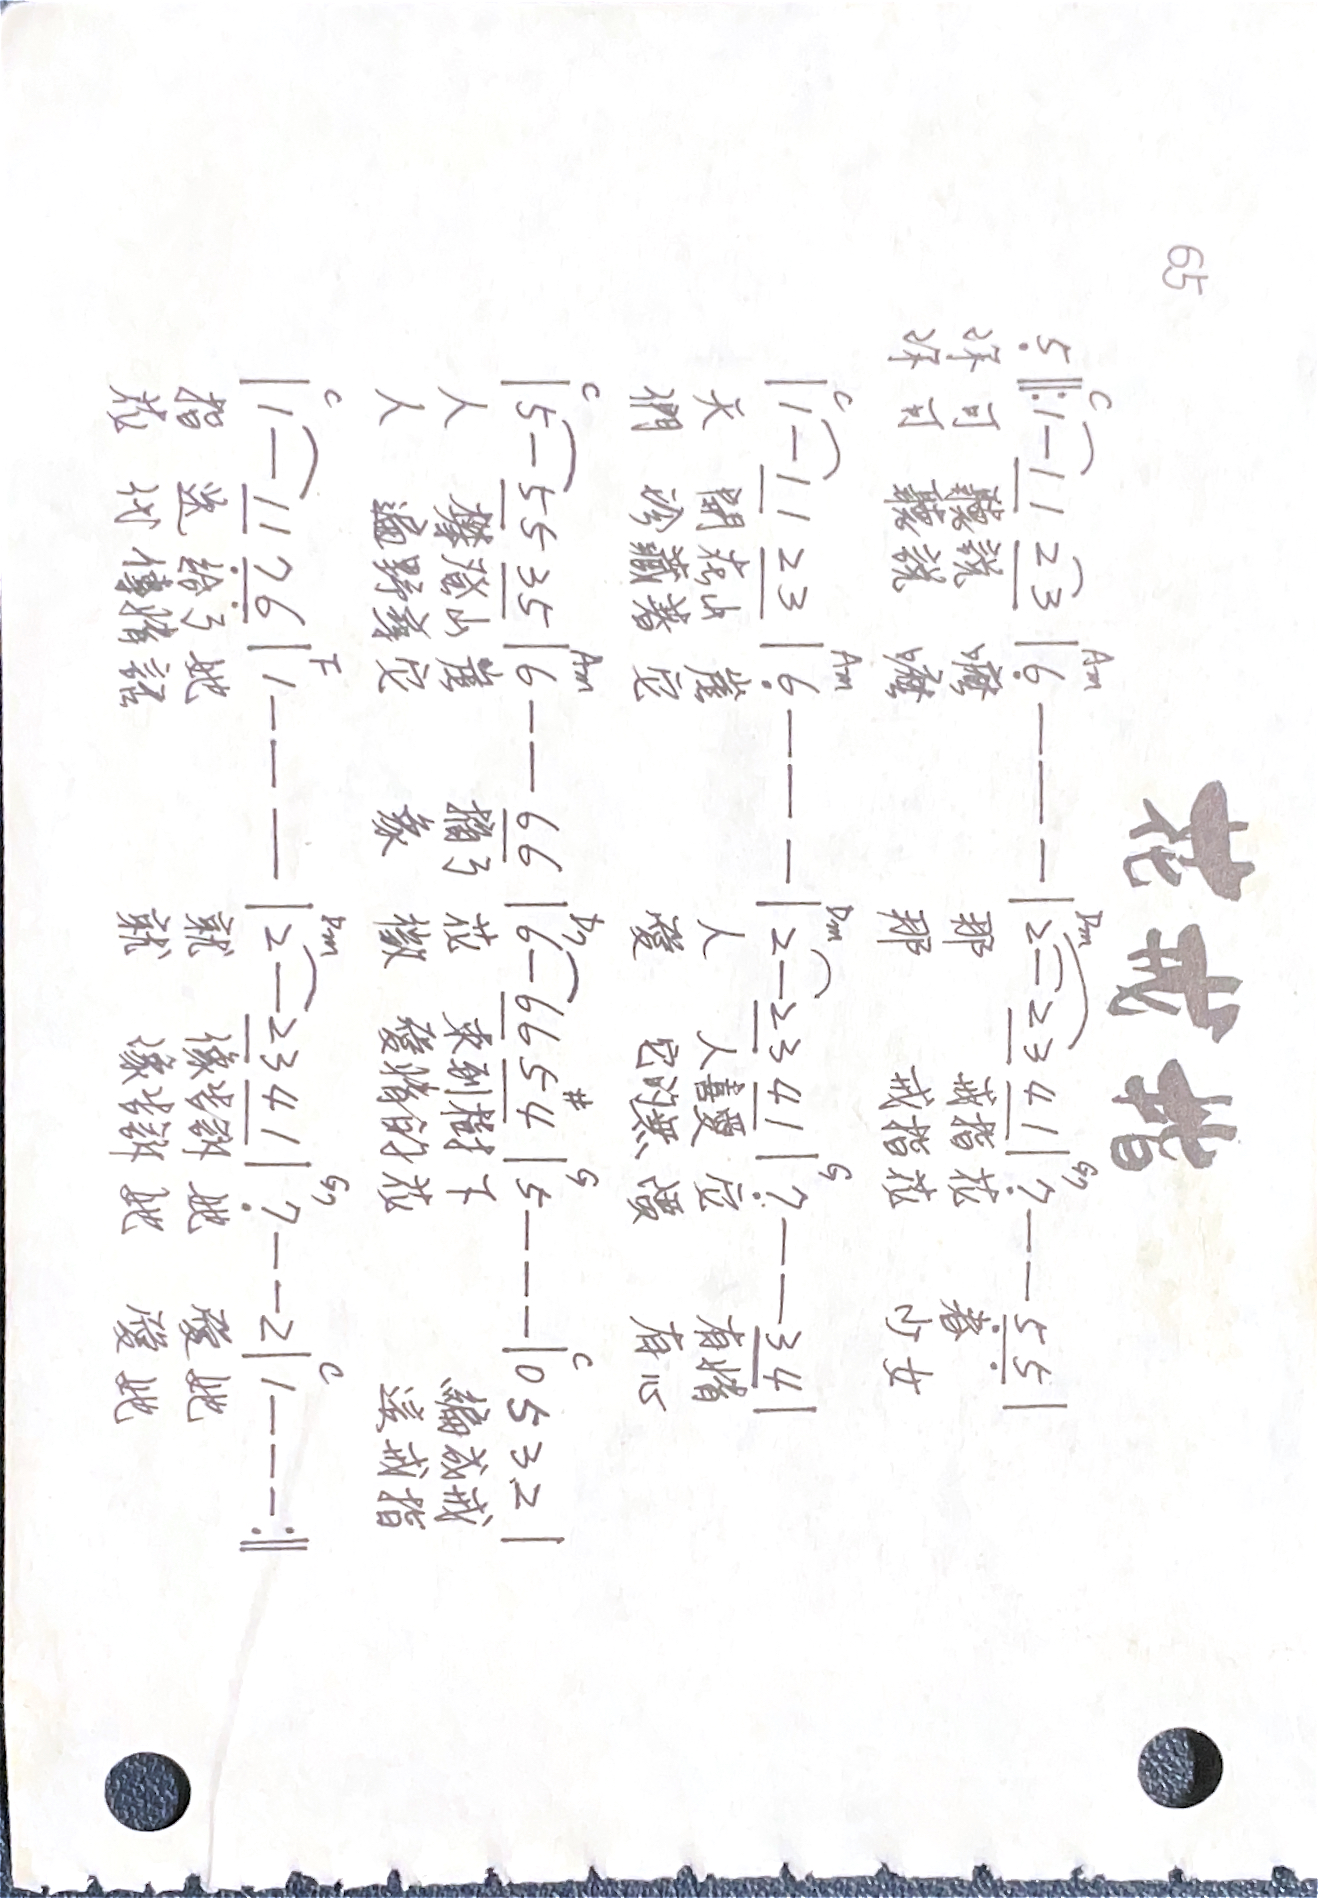 花戒指
65
C Am Dm G7
5 ‖: 1 — 1 1 2 3 | 6 — — — | 2 — 2 3 4 1 | 7 — — 5 5 |
你可 聽說 嚒 那 戒指花 春
你可 聽說 嚒 那 戒指花 少女
C Am Dm G
| 1 — 1 1 2 3 | 6 — — — | 2 — 2 3 4 1 | 7 — — 3 4 |
天 開在山 崖 人 人喜愛 它 有情
們 珍藏著 它 愛 它的無 價 有心
C Am D7 # G C
| 5 — 5 5 3 5 | 6 — — 6 6 | 6 — 6 6 5 4 | 5 — — — | 0 5 3 . 2 |
人 攀登山 崖 摘了 花 來到樹 下 編成戒
人 遍野尋 它 象 徵 愛情的 花 這戒指
C F Dm G7 C
| 1 — 1 1 7 6 | 1 — — — | 2 — 2 3 4 1 | 7 — — 2 | 1 — — — :‖
指 送 給了 她 就 像告訴 她 愛 她
花 代 傳情 話 就 像告訴 她 愛 她